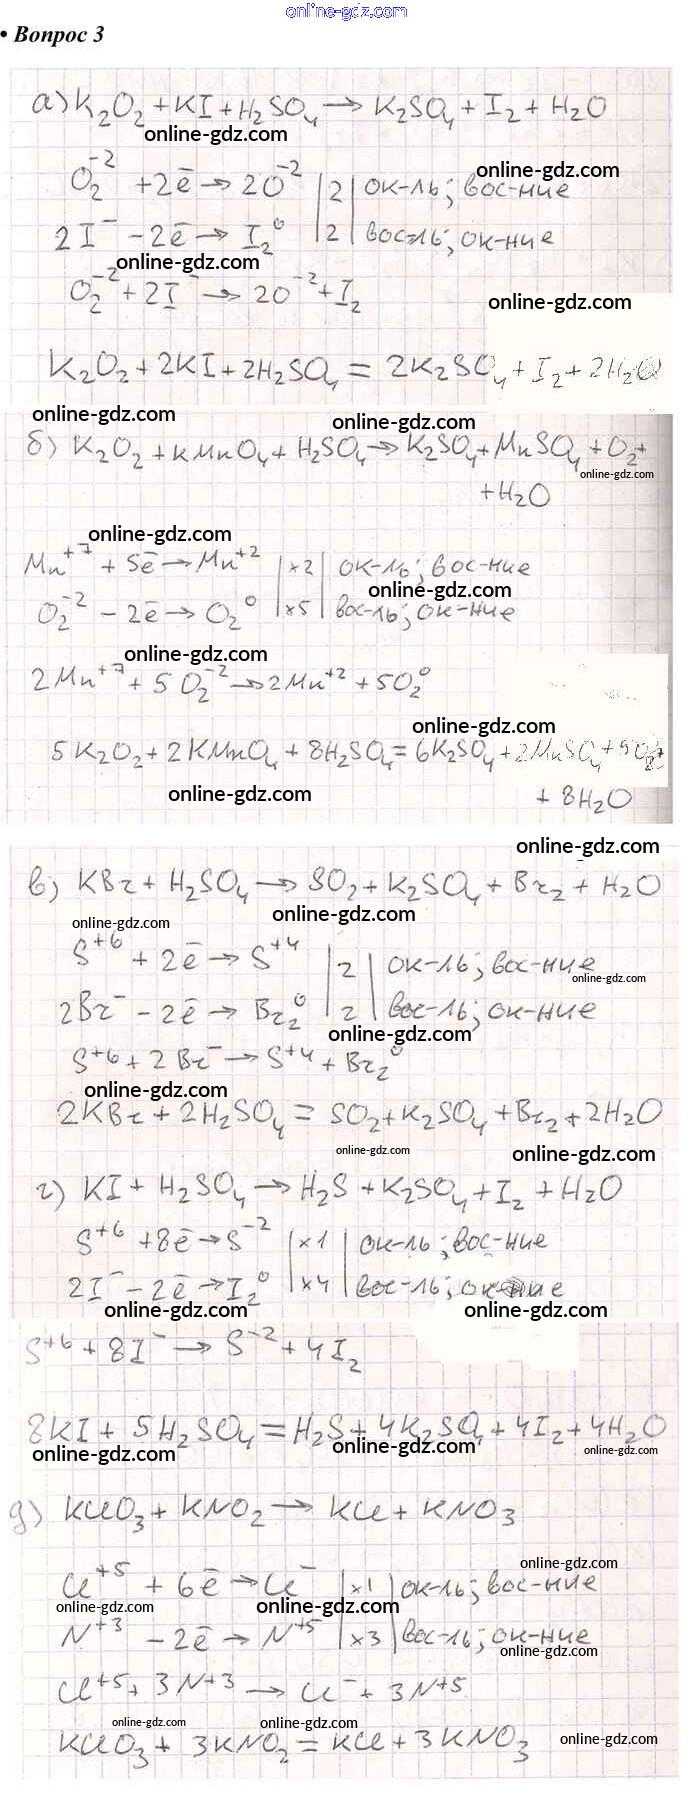 online-gdz.com
• Вопрос 3
а) K₂O₂ + KI + H₂SO₄ → K₂SO₄ + I₂ + H₂O
online-gdz.com
online-gdz.com
O₂⁻² + 2ē → 2O⁻² | 2 | ок-ль; вос-ние
2I⁻ - 2ē → I₂⁰ | 2 | вос-ль; ок-ние
online-gdz.com
O₂⁻² + 2I⁻ → 2O⁻² + I₂
online-gdz.com
K₂O₂ + 2KI + 2H₂SO₄ = 2K₂SO₄ + I₂ + 2H₂O
online-gdz.com
online-gdz.com
б) K₂O₂ + KMnO₄ + H₂SO₄ → K₂SO₄ + MnSO₄ + O₂ +
online-gdz.com
+ H₂O
online-gdz.com
Mn⁺⁷ + 5ē → Mn⁺² | x2 | ок-ль; вос-ние
online-gdz.com
O₂⁻² - 2ē → O₂⁰ | x5 | вос-ль; ок-ние
online-gdz.com
2Mn⁺⁷ + 5O₂⁻² → 2Mn⁺² + 5O₂⁰
online-gdz.com
5K₂O₂ + 2KMnO₄ + 8H₂SO₄ = 6K₂SO₄ + 2MnSO₄ + 5O₂ +
online-gdz.com
+ 8H₂O
online-gdz.com
в) KBr + H₂SO₄ → SO₂ + K₂SO₄ + Br₂ + H₂O
online-gdz.com
online-gdz.com
S⁺⁶ + 2ē → S⁺⁴ | 2 | ок-ль; вос-ние
online-gdz.com
2Br⁻ - 2ē → Br₂⁰ | 2 | вос-ль; ок-ние
online-gdz.com
S⁺⁶ + 2Br⁻ → S⁺⁴ + Br₂⁰
online-gdz.com
2KBr + 2H₂SO₄ = SO₂ + K₂SO₄ + Br₂ + 2H₂O
online-gdz.com
online-gdz.com
г) KI + H₂SO₄ → H₂S + K₂SO₄ + I₂ + H₂O
S⁺⁶ + 8ē → S⁻² | x1 | ок-ль; вос-ние
2I⁻ - 2ē → I₂⁰ | x4 | вос-ль; ок-ние
online-gdz.com
online-gdz.com
S⁺⁶ + 8I⁻ → S⁻² + 4I₂
8KI + 5H₂SO₄ = H₂S + 4K₂SO₄ + 4I₂ + 4H₂O
online-gdz.com
online-gdz.com
online-gdz.com
д) KClO₃ + KNO₂ → KCl + KNO₃
online-gdz.com
Cl⁺⁵ + 6ē → Cl⁻ | x1 | ок-ль; вос-ние
online-gdz.com
online-gdz.com
N⁺³ - 2ē → N⁺⁵ | x3 | вос-ль; ок-ние
online-gdz.com
Cl⁺⁵ + 3N⁺³ → Cl⁻ + 3N⁺⁵
online-gdz.com
online-gdz.com
KClO₃ + 3KNO₂ = KCl + 3KNO₃
online-gdz.com